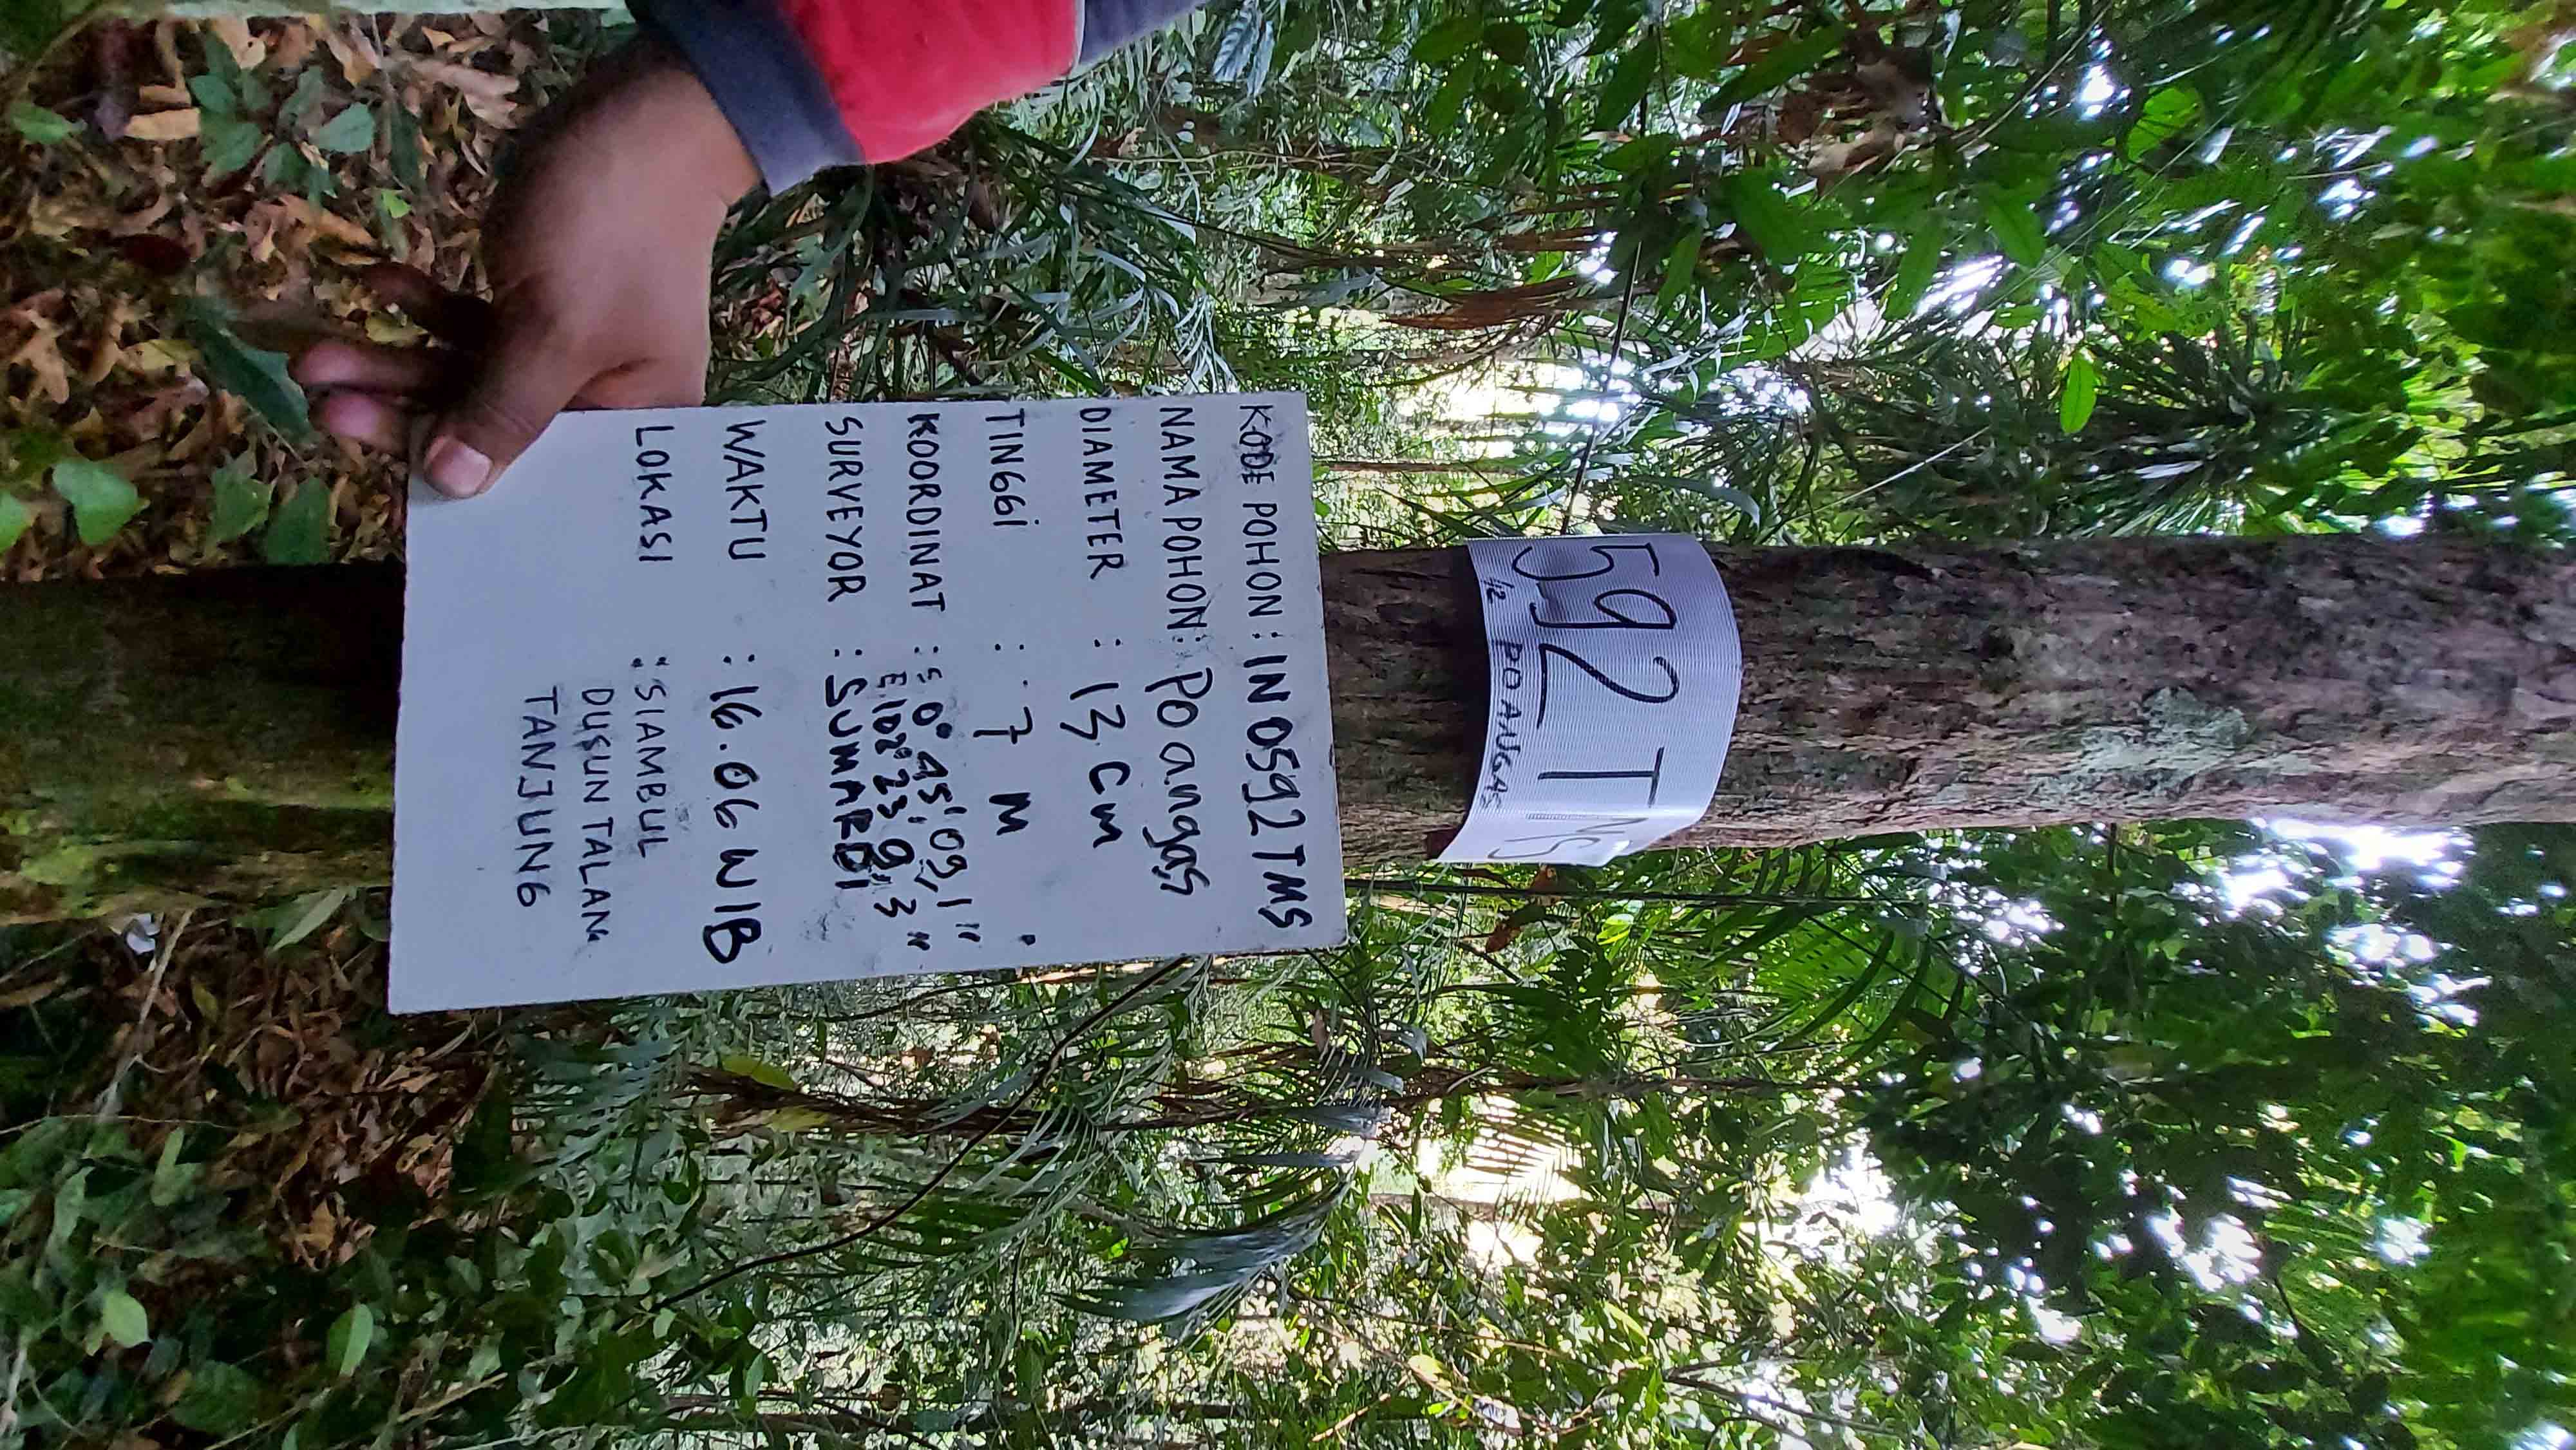 592 TMS
1/2 PO ANGAS
KODE POHON : IN 0592 TMS
NAMA POHON : Po angas
DIAMETER : 13 cm
TINGGI : 7 M
KOORDINAT : S 0° 45' 09,1"
E.102° 23' 9,3"
SURVEYOR : SUMARDI
WAKTU : 16.06 WIB
LOKASI : SIAMBUL
DUSUN TALANG
TANJUNG